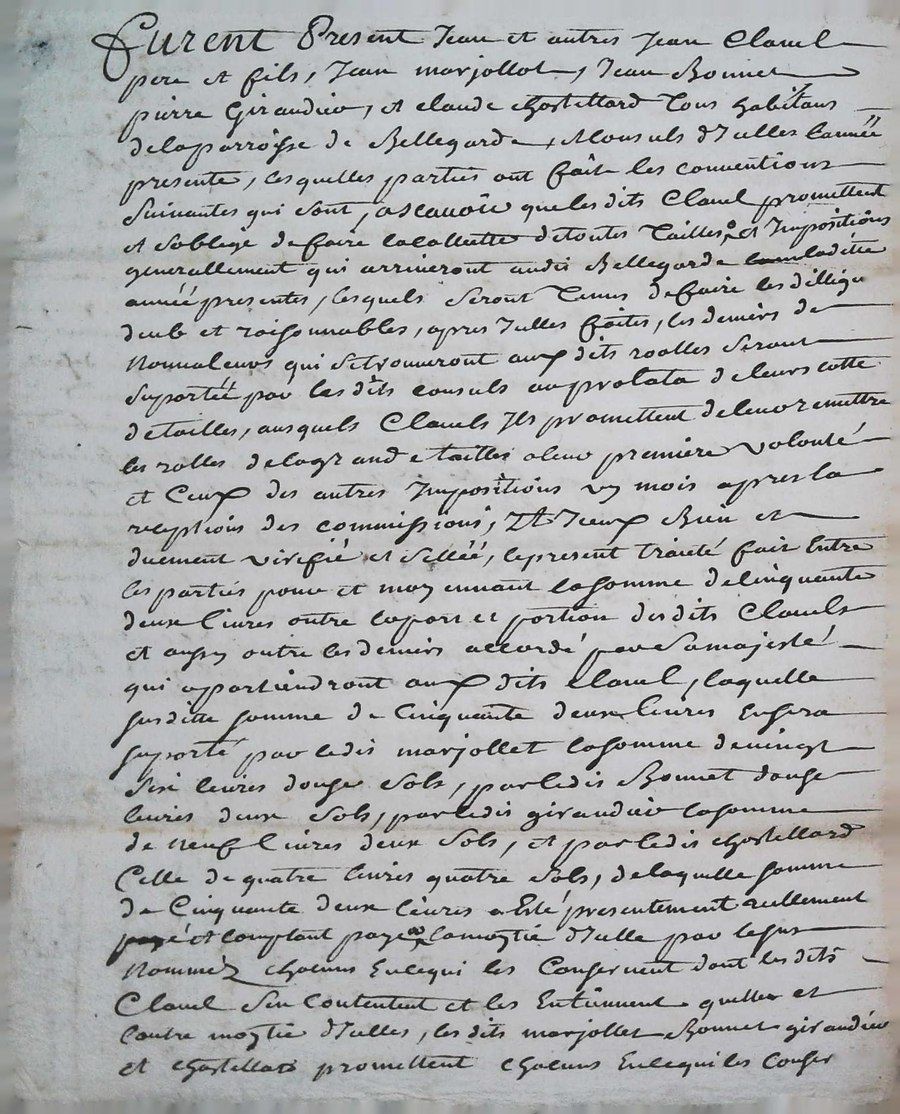 furent Present Jean et autres Jean Clavel
pere et fils, Jean marjollet, Jean Bonnet
pierre Giraudier, et claude chastellard Tous habitans
delaparroisse de Bellegarde, Consuls d'Icelles lannéé
presente, lesquelles parties ont fait les conventions
Suivantes qui sont, ascavoir que les dits Clavel promettent
et soblige defaire lacollette detoutes Tailles et Impositions
generallement qui arriveront audit Bellegarde ladite
année presentes, lesquels Seront Tenus defaire les dillig
deub et raisonnables, apres Icelles faites, les deniers de
Nonvaleurs qui Setrouveront aux dits roolles Seront
Suportéé par les dits consuls auprolata deleurs cotte
detailles, ausquels Clavels Ils promettent deleur remettre
les rolles delagrande tailles aleur premiere volonté
et Ceux des autres Impositions un mois apresla
reception des commissions, Et Iceux Bien et
duement verifié et sellée, lepresent traité fait Entre
les parties pour et moyennant lasomme decinquante
deux livres outre lapart et portion desdits Clavels
et aussy outre lesdeniers accordé par Samajesté
qui apartiendront aux dits Clavel, laquelle
susditte somme de Cinquante deux livres Ensera
suporté par ledit marjollet lasomme devingt
Six livres douze Sols, parledit Bonnet douze
livres deux Sols, parledit giraudier lasomme
de neuf livres deux Sols, et parledit chastellard
Celle de quatre livres quatre Sols, delaquelle somme
de Cinquante deux livres a Esté presentement reellement
et comptant payé lamoytié d'Icelle par lesus
Nommez chacuns Encequi les Consernent dont lesdits
Clavel Sen Contentent et les Entiennent quitter et
lautre moytié d'Icelles, les dits marjollet Bonnet giraudier
et chastellard promettent chacuns Encequiles Conser